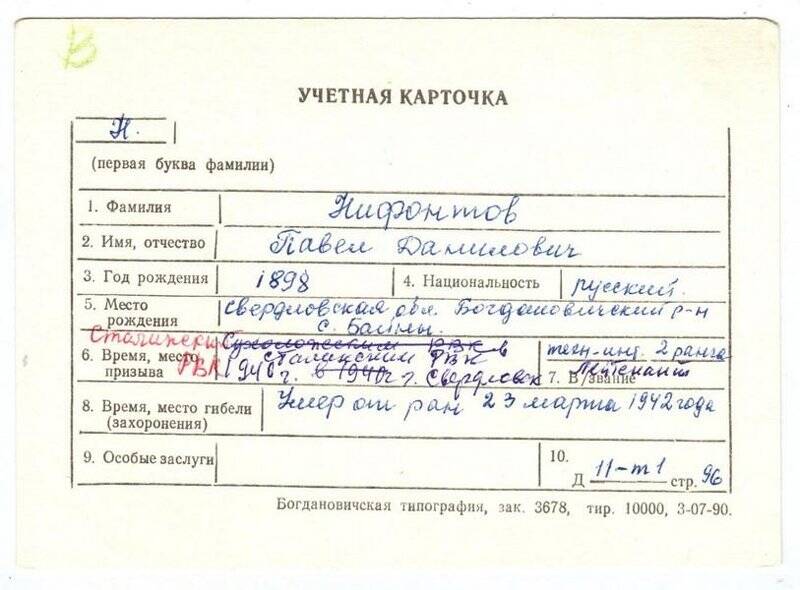 В
УЧЕТНАЯ КАРТОЧКА
Н.
(первая буква фамилии)
1. Фамилия Нифонтов
2. Имя, отчество Павел Данилович
3. Год рождения 1898 4. Национальность русский.
5. Место рождения Свердловская обл. Богдановичский р-н
с. Байны.
Сталинский РВК
Сухоложским РВК в
6. Время, место призыва Сталинским РВК
1940 г. в 1940 г. г. Свердловск
техн-инт. 2 ранга
Лейтенант
7. В/звание
8. Время, место гибели (захоронения) Умер от ран 23 марта 1942 года
9. Особые заслуги
10. Д 11-т1 стр. 96
Богдановичская типография, зак. 3678, тир. 10000, 3-07-90.